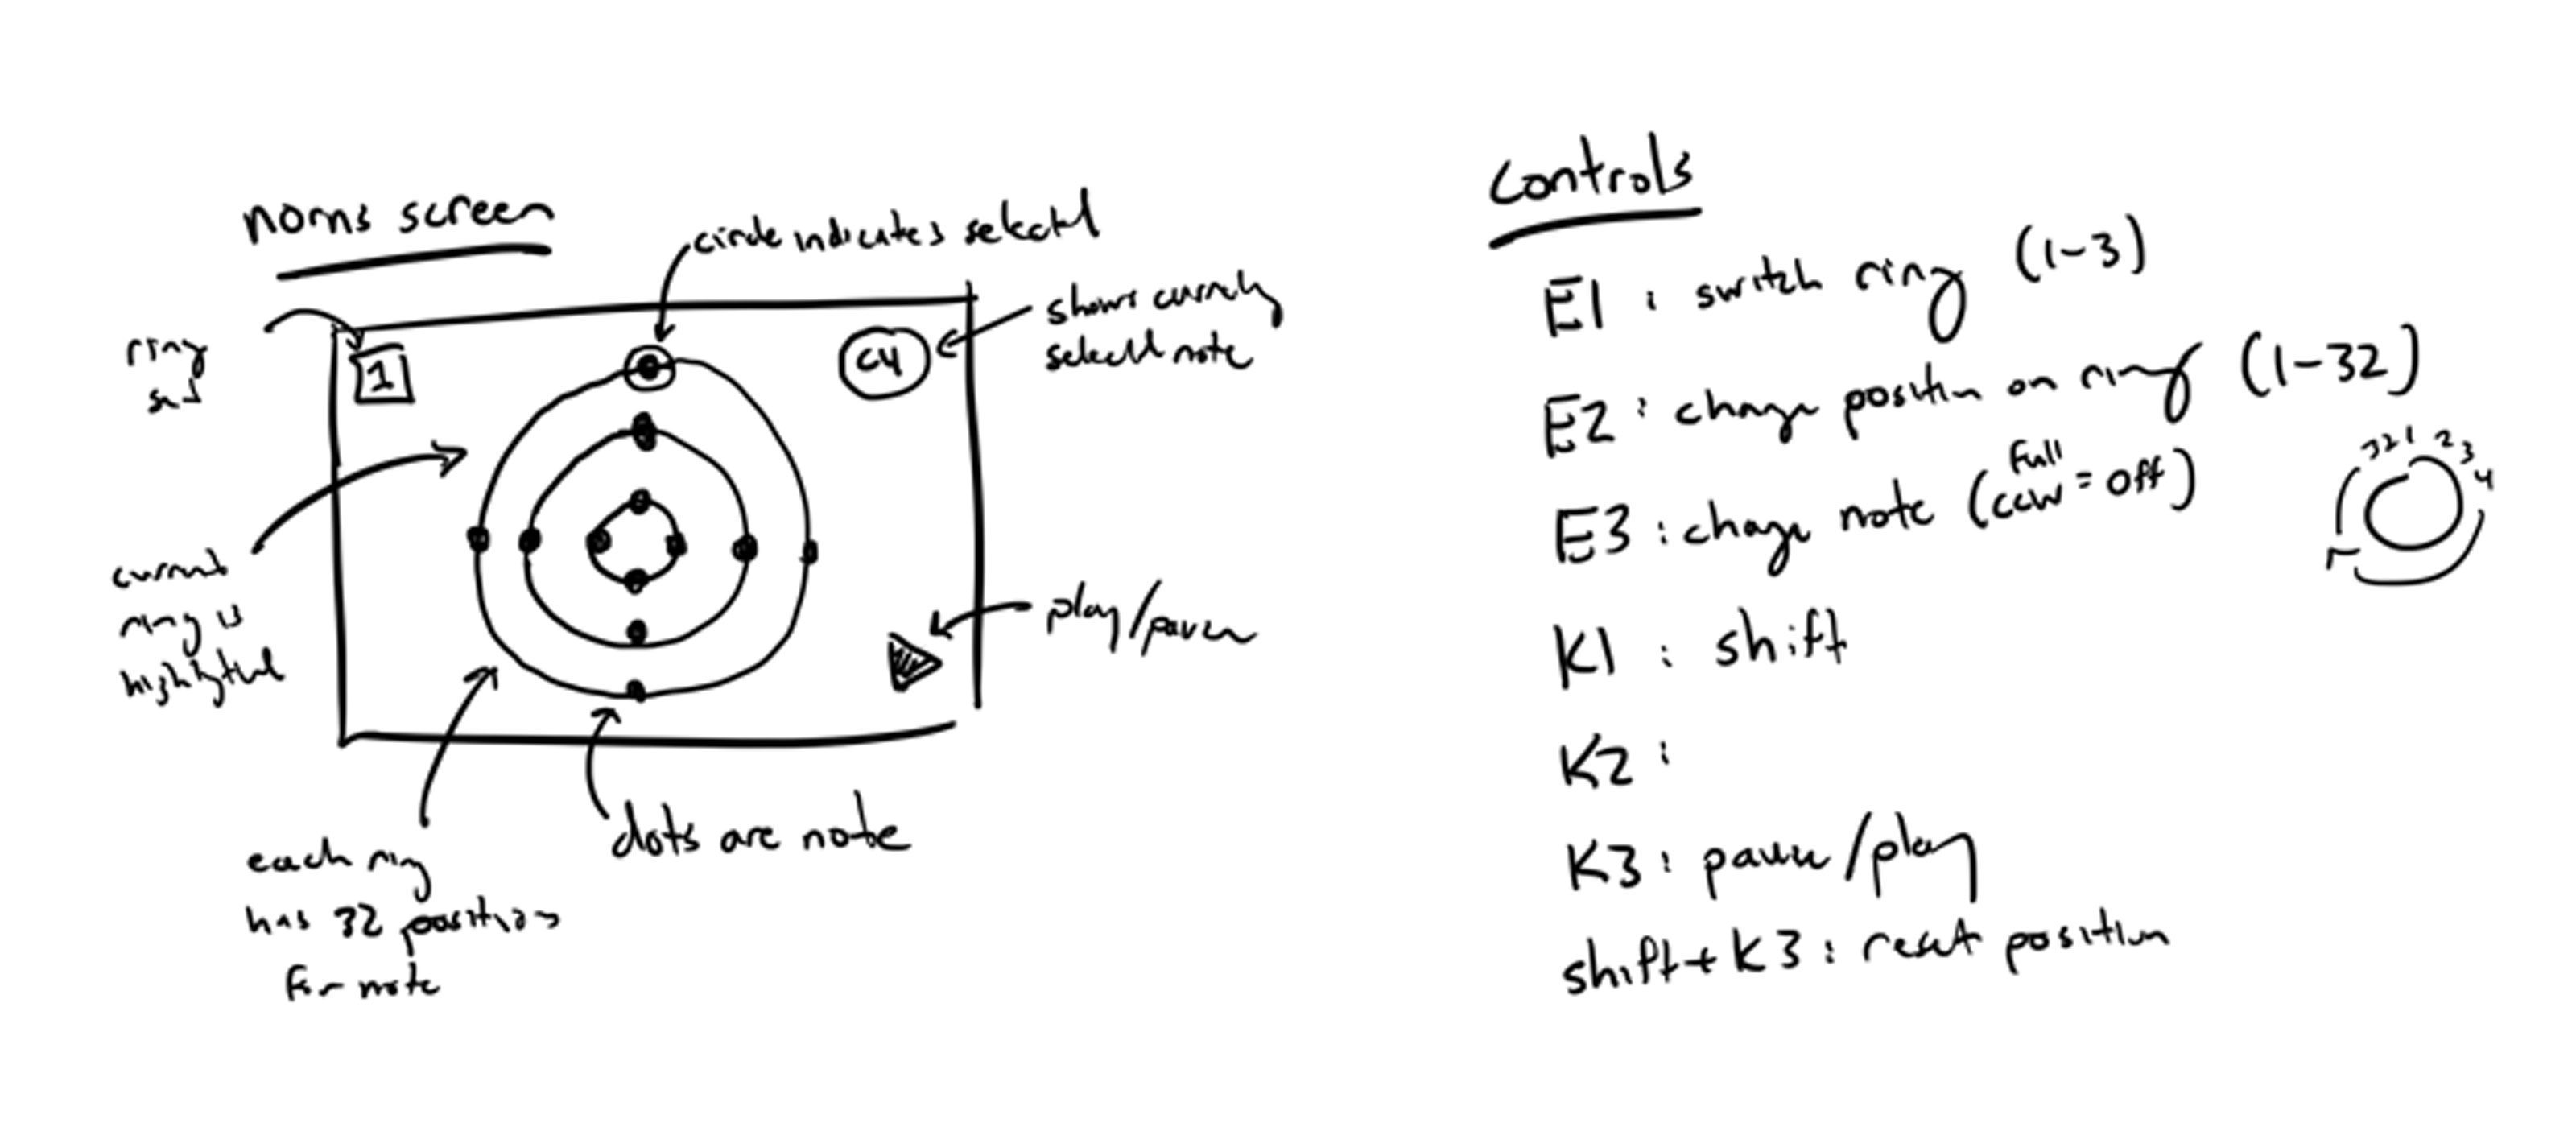 norns screen
circle indicates selected
shows currently
selected note
ring
1
C4
current
ring is
highlighted
play/pause
each ring
has 32 positions
for note
dots are note
controls
E1 : switch ring (1-3)
E2 : change position on ring (1-32)
E3 : change note (full ccw = off)
32 1 2 3 4
K1 : shift
K2 :
K3 : pause/play
shift + K3 : reset position